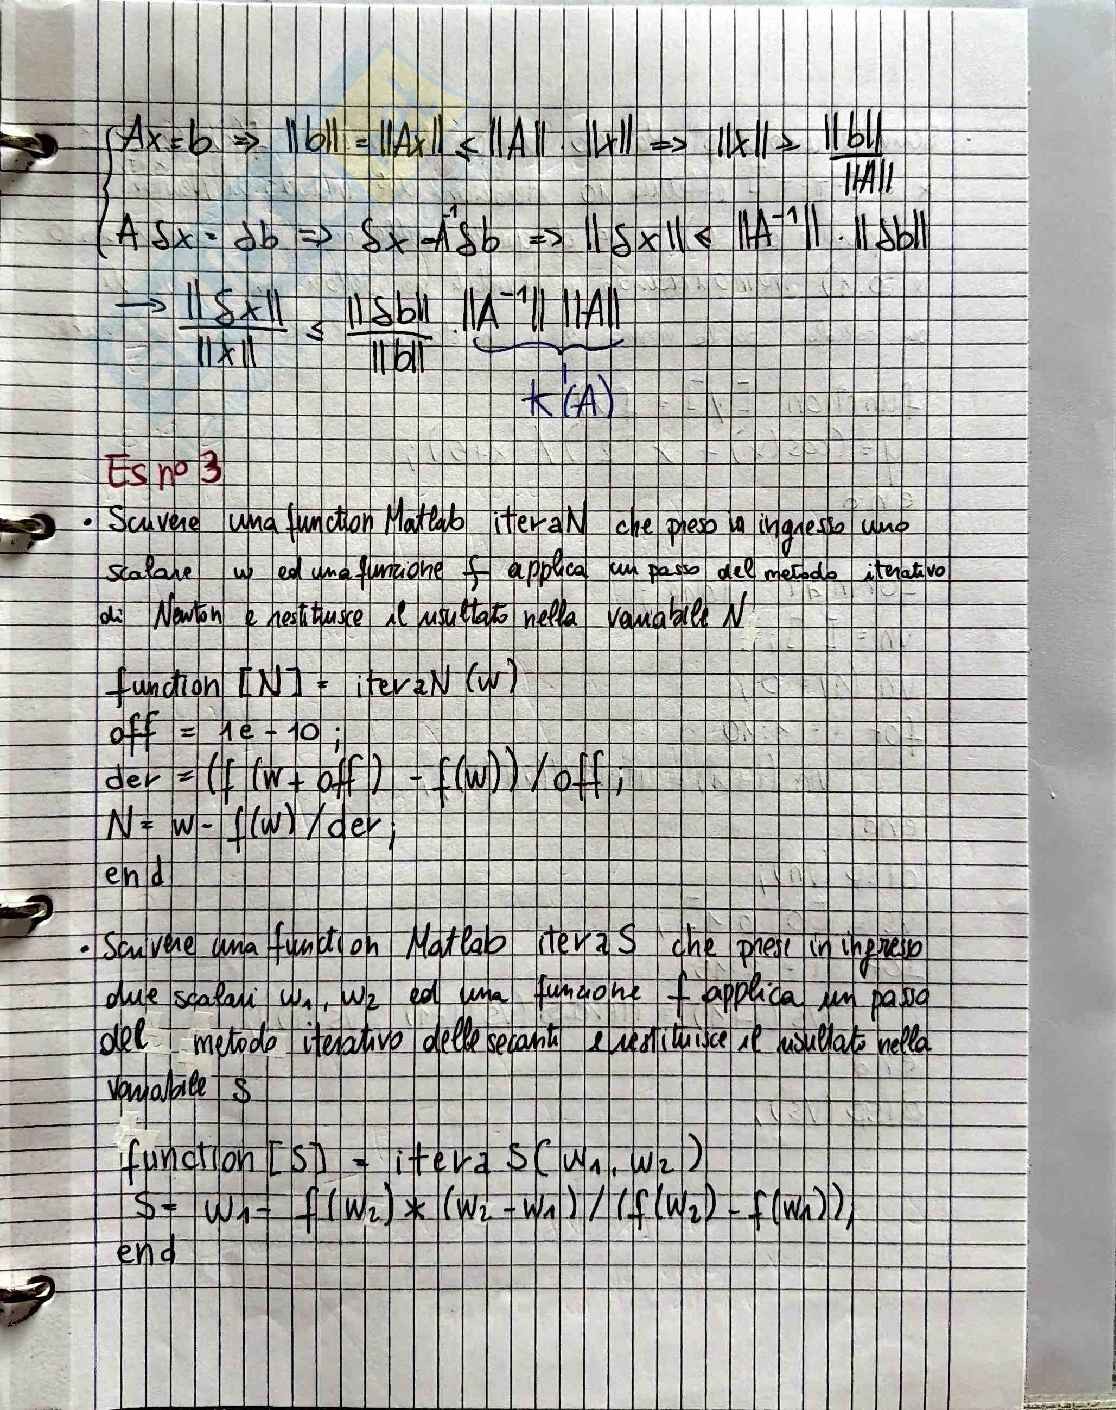 Ax = b ⇒ ||b|| = ||Ax|| ≤ ||A|| · ||x|| ⇒ ||x|| ≥ ||b|| / ||A||
A δx = δb ⇒ δx = A⁻¹ δb ⇒ ||δx|| ≤ ||A⁻¹|| · ||δb||
→ ||δx|| / ||x|| ≤ ||δb|| / ||b|| · ||A⁻¹|| ||A||
K(A)
Es n° 3
• Scrivere una function Matlab iteraN che preso in ingresso uno
scalare w ed una funzione f applica un passo del metodo iterativo
di Newton e restituisce il risultato nella variabile N
function [N] = iteraN (w)
off = 1e-10;
der = (f (w + off) - f(w)) / off;
N = w - f(w) / der;
end
• Scrivere una function Matlab iteraS che presi in ingresso
due scalari w₁, w₂ ed una funzione f applica un passo
del metodo iterativo delle secanti e restituisce il risultato nella
variabile S
function [S] = iteraS(w₁, w₂)
S = w₁ - f(w₂) * (w₂ - w₁) / (f(w₂) - f(w₁));
end